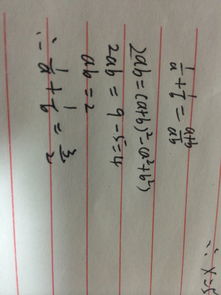 ∴ x=5
1/a + 1/b = a+b/ab
2ab = (a+b)² - (a²+b²)
2ab = 9 - 5 = 4
ab = 2
∴ 1/a + 1/b = 3/2